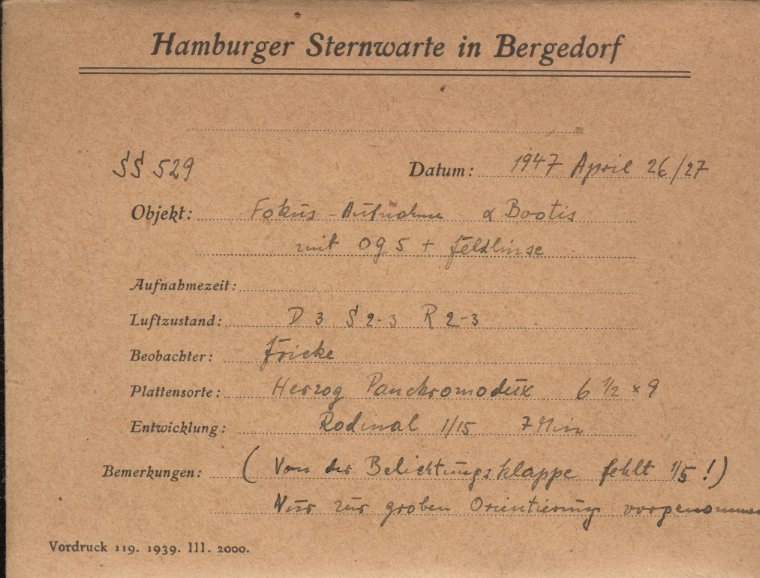 Hamburger Sternwarte in Bergedorf
SS 529 Datum: 1947 April 26/27
Objekt: Fokus-Aufnahme α Bootis
mit OG5 + Feldlinse
Aufnahmezeit:
Luftzustand: D 3 S 2-3 R 2-3
Beobachter: Fricke
Plattensorte: Herzog Panchromodux 6 1/2 × 9
Entwicklung: Rodinal 1/15 7 Min
Bemerkungen: (Von der Belichtungsklappe fehlt 1/5!)
Nur zur groben Orientierung vorgenommen
Vordruck 119. 1939. III. 2000.